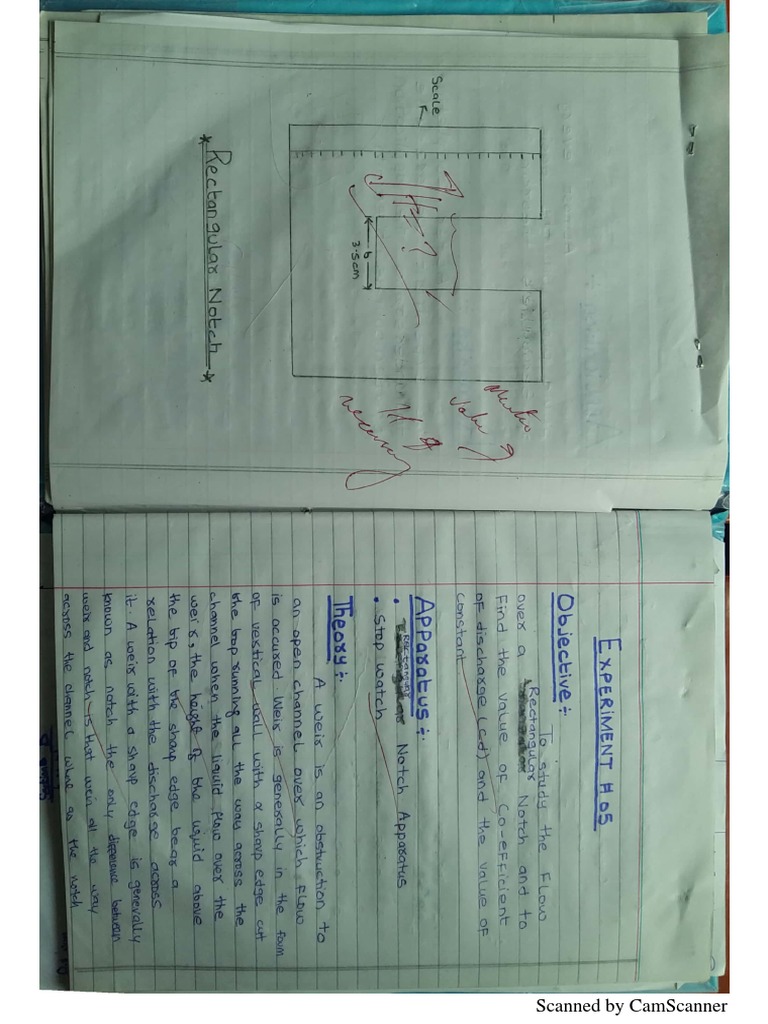 Scale
b
3.5cm
* Rectangular Notch *
H = ?
value of
H is
necessary
EXPERIMENT # 05
Objective:-
To study the Flow
over a Rectangular Notch and to
Find the value of Co-efficient
of discharge (cd) and the value of
constant
Apparatus:-
• Rectangular Notch Apparatus
• Stop watch
Theory:-
A weir is an obstruction to
an open channel over which flow
is occured. Weir is generally in the foam
of vertical wall with a sharp edge cut
the top running all the way across the
channel when the liquid flow over the
weir, the height of the liquid above
the tip of the sharp edge bear a
relation with the discharge across
it. A weir with a sharp edge is generally
known as notch the only difference between
weir and notch is that weir all the way
across the channel while go the notch
Scanned by CamScanner